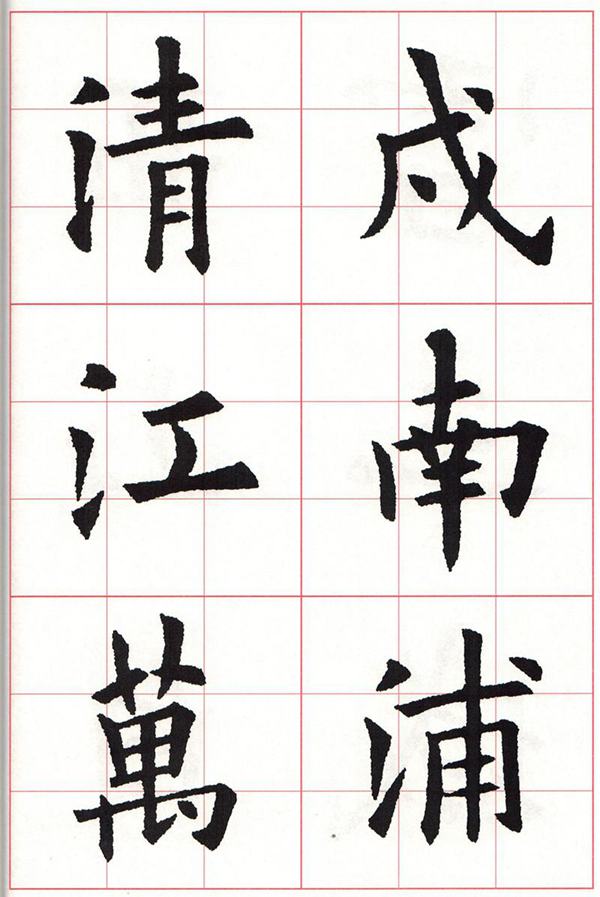 戍南浦
清江萬